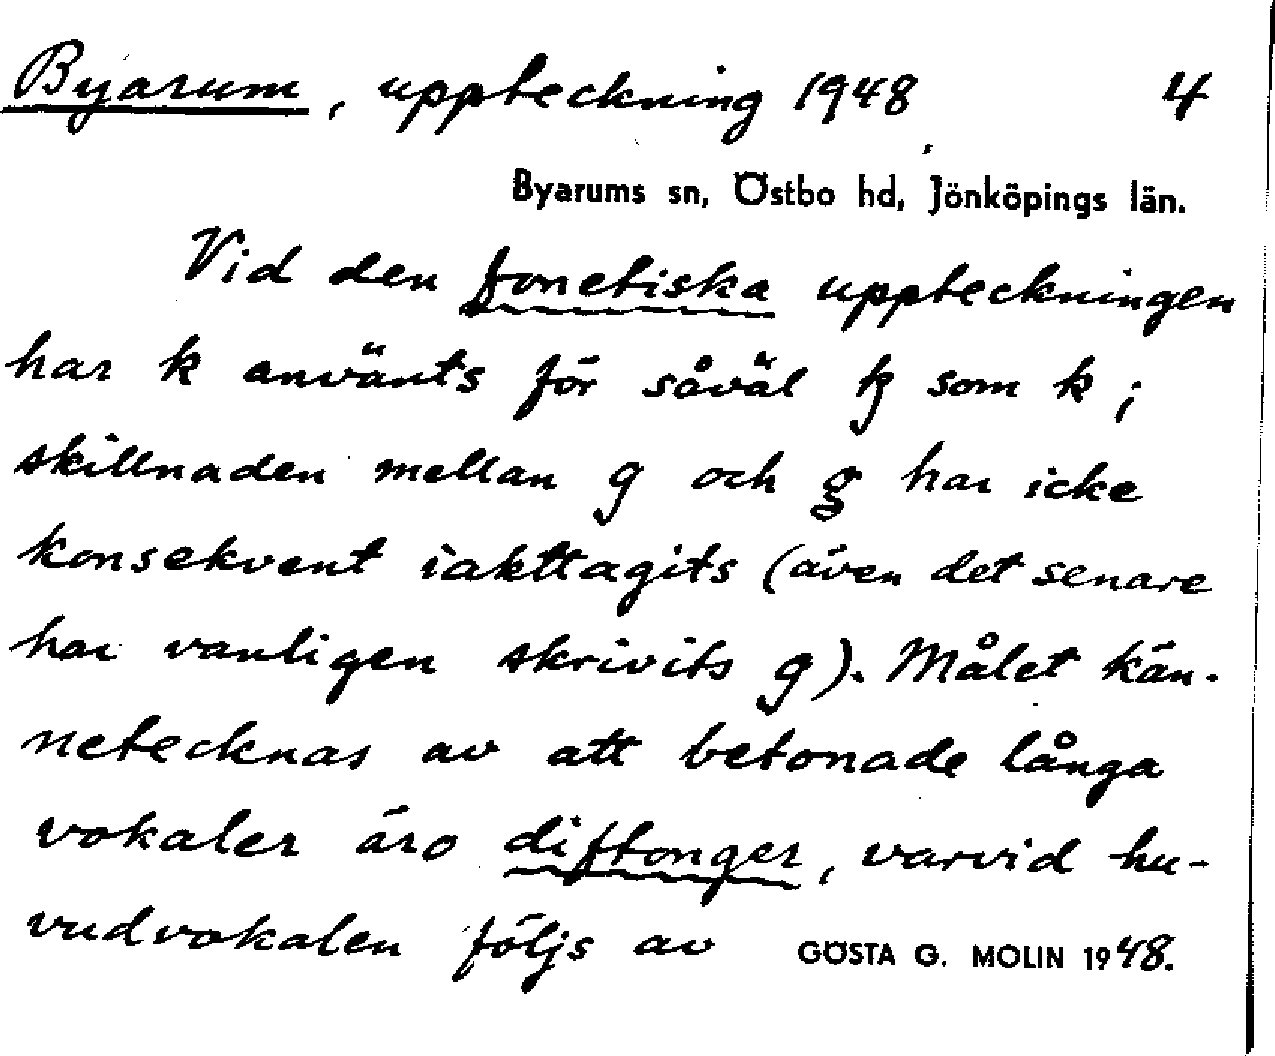 Byarum, uppteckning 1948 4
Byarums sn, Östbo hd, Jönköpings län.
Vid den fonetiska uppteckningen
har k använts för såväl ꞣ som k ;
skillnaden mellan g och g har icke
konsekvent iakttagits (även det senare
har vanligen skrivits g). Målet kän-
netecknas av att betonade långa
vokaler äro diftonger, varvid hu-
vudvokalen följs av GÖSTA G. MOLIN 1948.